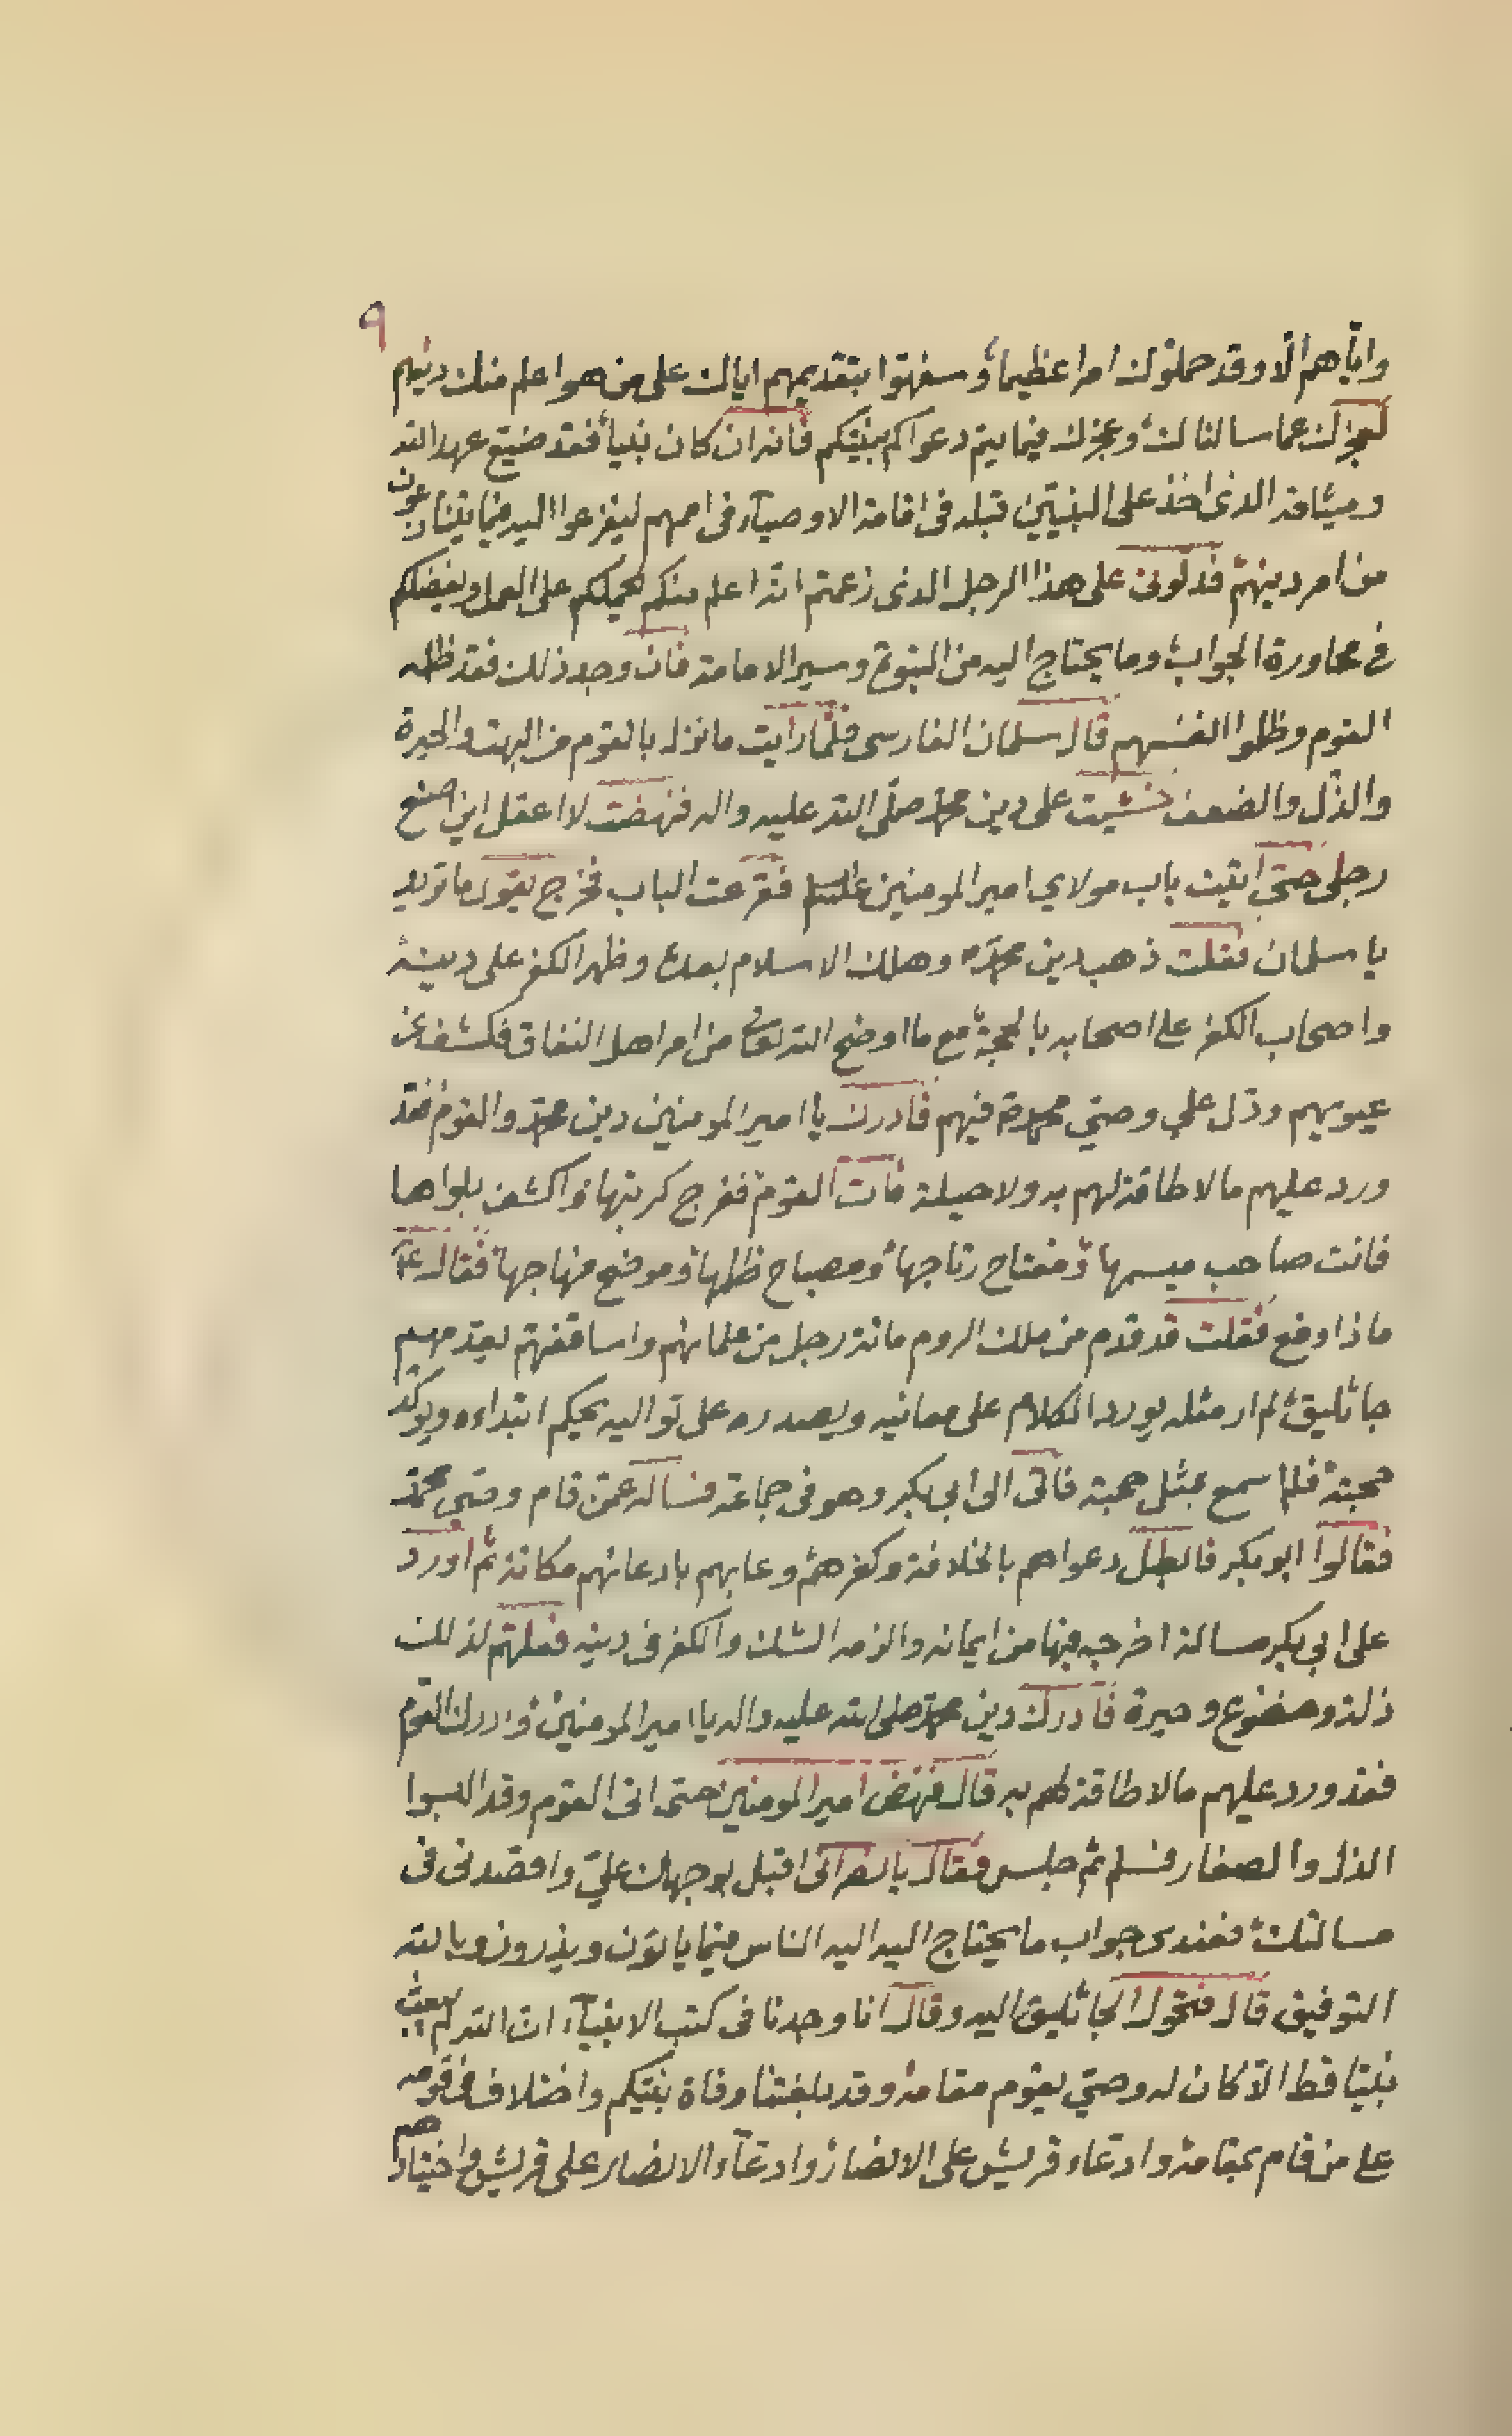 ٩
واياهم الّا وقد حملوك امرا عظيما وسفهوا بتقديمهم اياك على من هو اعلم منك دينهم
لعجزك عما سالناك وعجزك فيما يتم دعواكم بنبيكم فانه ان كان نبيا فقد ضيع عهد الله
وميثاقه الذى اخذ على النبيين قبله فى اقامة الاوصياء فى اممهم ليفزعوا اليه فيما يتنازعون
من امر دينهم فدلونى على هذا الرجل الذى زعمتم انه اعلم منكم على العمل
فى محاورة الجواب وما يحتاج اليه من النبوة وسير الامامة فان وجد ذلك فقد ظلمه
القوم وظلموا انفسهم قال سلمان الفارسى فلما رايت ما نزل بالقوم من البهت والحيرة
والذل والضعف خشيت على دين محمد صلى الله عليه واله فنهضت لا اعقل اين اضع
رجلى حتى اتيت باب مولاي امير المومنين عليه السلام فقرعت الباب فخرج يقول ما تريد
يا سلمان فقلت ذهب دين محمد وهلك الاسلام بعده وظهر الكفر على دينه
واصحاب الكفر على اصحابه بالحجة مع ما اوضح الله تعالى من امر اهل النفاق فكشف عن
عيوبهم ودل على وصي محمد فيهم فادرك يا امير المومنين دين محمد والقوم فقد
ورد عليهم ما لا طاقة لهم به ولا حيلة فات القوم ففرج كربتها واكشف بلواها
فانت صاحب ميسمها ومفتاح رتاجها ومصباح ظلمها وموضح منهاجها فقال ع
ما ذا وقع فقلت قد قدم من ملك الروم مائة رجل من علمائهم واساقفتهم يقدمهم
جاثليق لم ار مثله يورد الكلام على معانيه ويصدره على تواليه يحكم ابتداءه ويوكد
حجته فلم اسمع بمثل حجته فاتى الى ابي بكر وهو فى جماعة فساله عمن قام وصى محمد
فقالوا ابو بكر فابطل دعواهم بالخلافة وكفرهم وعابهم بادعائهم مكانه ثم اورد
على ابي بكر مسالة اخرجه فيها من ايمانه والزمه الشك والكفر فى دينه فعلتهم لذلك
ذلة وخضوع وحيرة فادرك دين محمد صلى الله عليه واله يا امير المومنين وادرك القوم
فقد ورد عليهم ما لا طاقة لهم به قال فنهض امير المومنين حتى اتى القوم وقد البسوا
الذل والصغار فسلم ثم جلس فقال يا نصرانى اقبل بوجهك علي واقصدنى فى
مسالتك فعندى جواب ما يحتاج اليه اليه الناس فيما ياتون ويذرون وبالله
التوفيق قال فتحول الجاثليق اليه وقال انا وجدنا فى كتب الانبياء ان الله لم يبعث
نبيا قط الّا كان له وصي يقوم مقامه وقد بلغتنا وفاة نبيكم واختلاف فى قومه
على من قام بمقامه وادعاء قريش على الانصار وادعاء الانصار على قريش واختيارهم